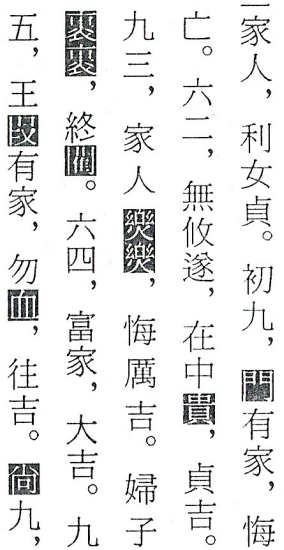 家人，利女貞。初九，門有家，悔
亡。六二，無攸遂，在中貴，貞吉。
九三，家人爕爕，悔厲吉。婦子
裏裏，終閵。六四，富家，大吉。九
五，王叚有家，勿血，往吉。尚九，